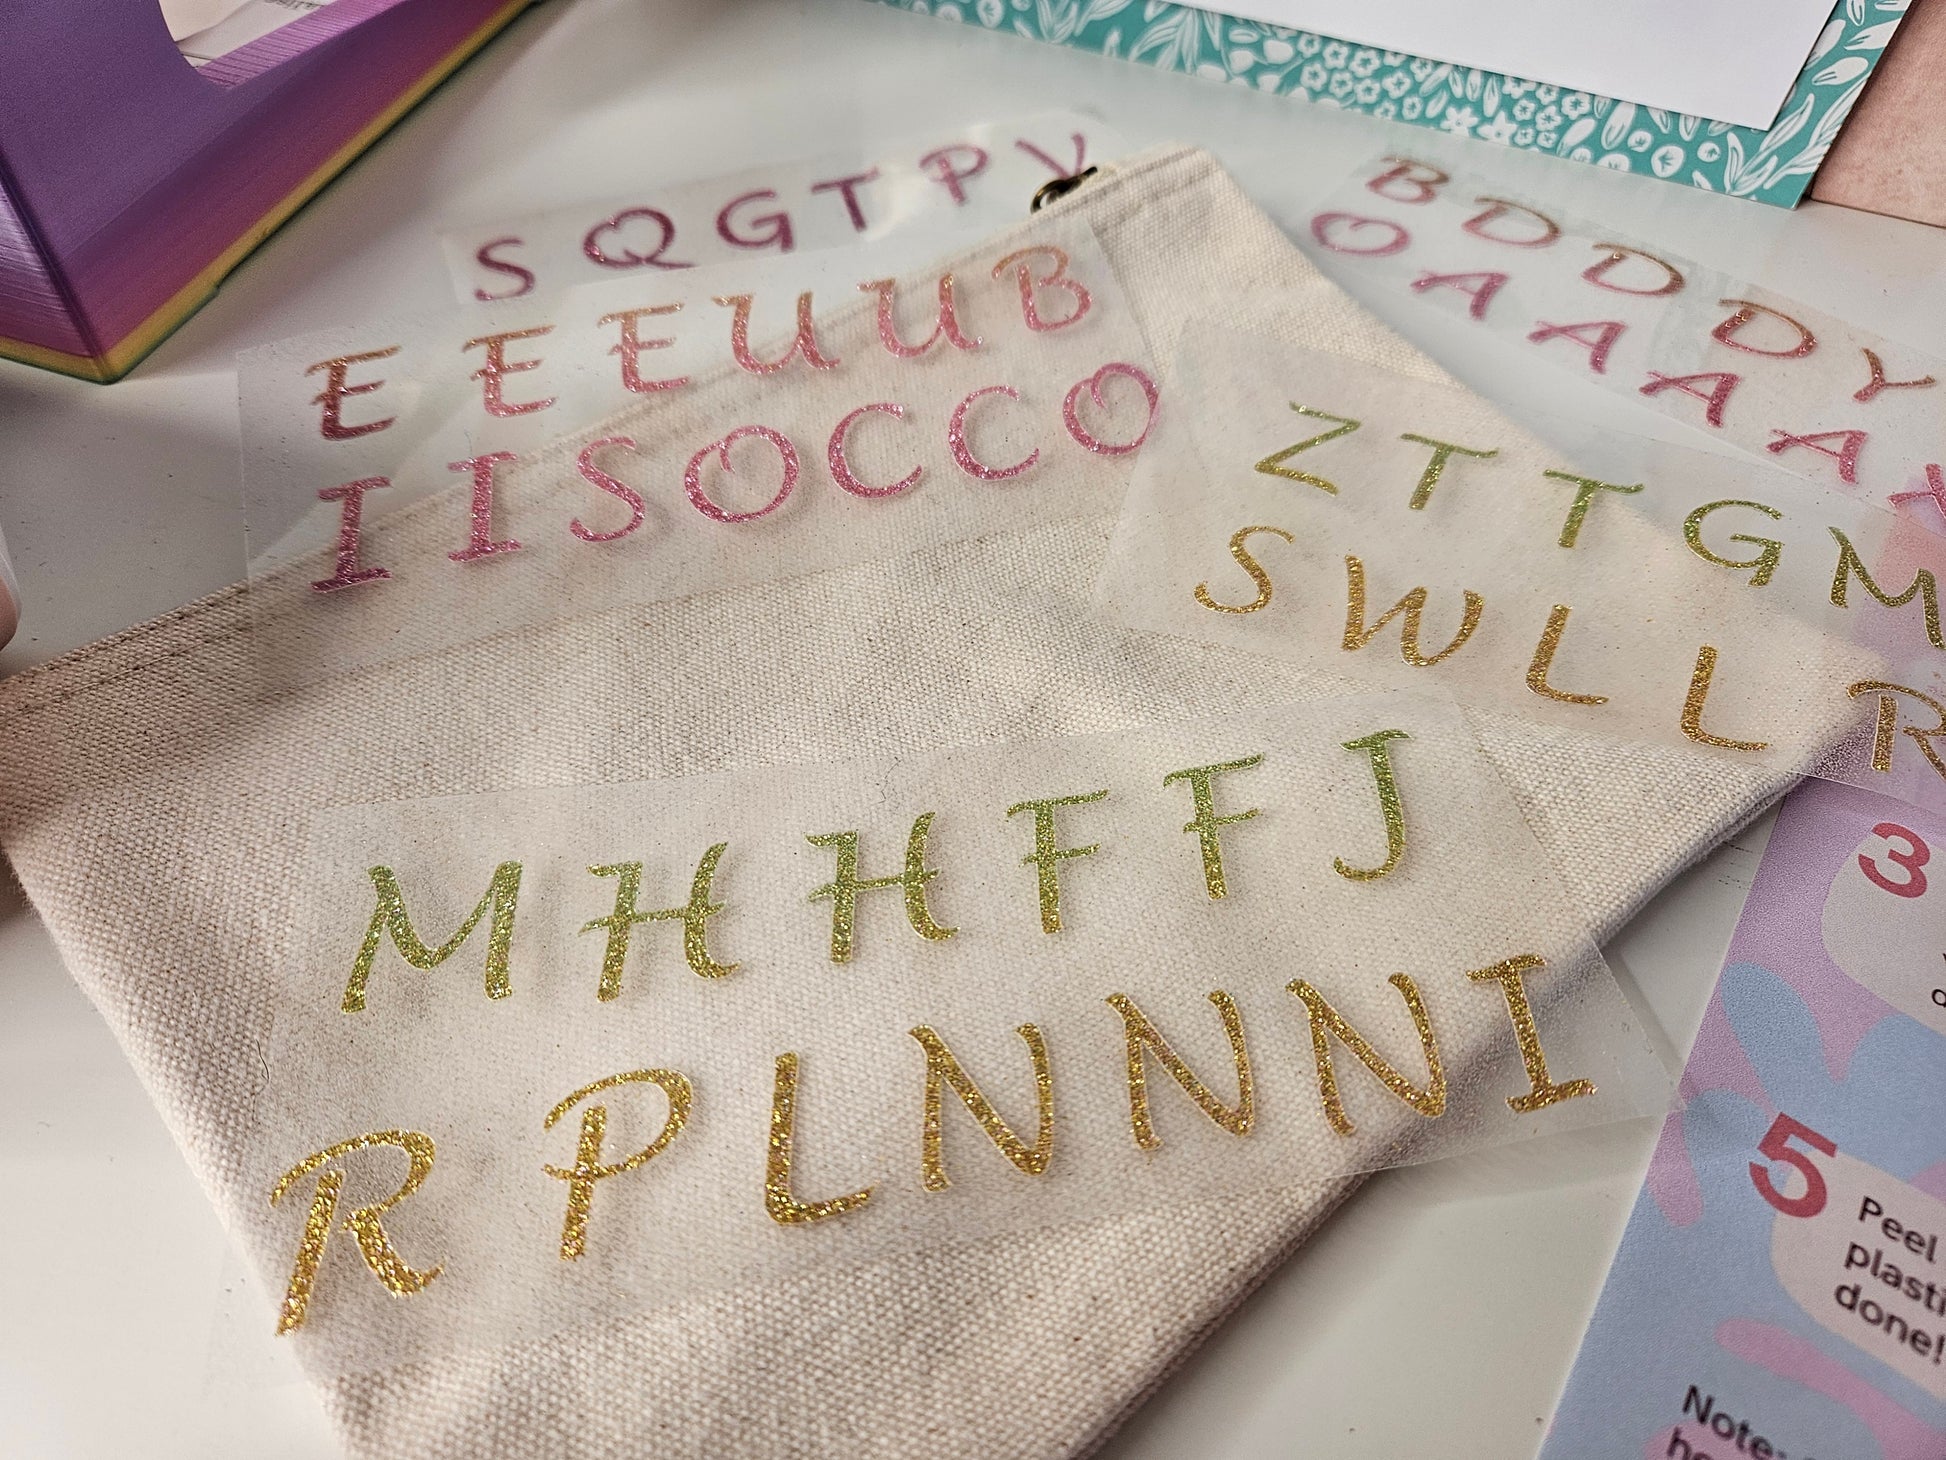 SQGTPY
EEEUUB
IISOCCO
BDDDY
OAAAA
ZTTGM
SWLLR
MHHFFJ
RPLNNNI
3
5
Peel
done!
Note: